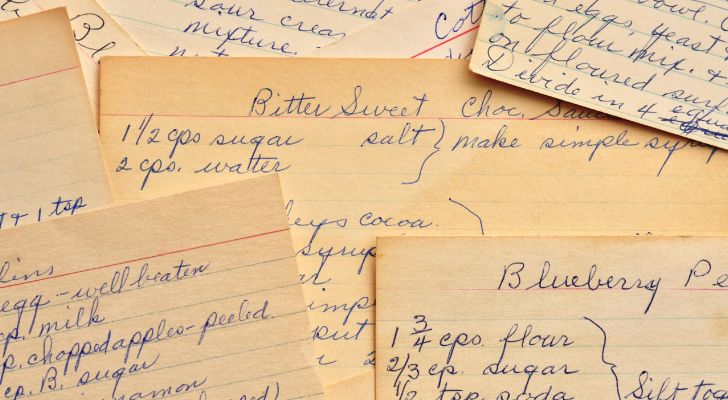 sour crea
mixture.
Bl
Cot
eggs yeast m
to flour mix. &
on floured sur
Divide in 4 equa
Bitter Sweet Choc. Sauc
1 1/2 cps sugar salt } make simple syrup
2 cps. watter
eys cocoa.
syrup
t & 1 tsp
lins
egg - well beaten
cp. milk
p. chopped apples - peeled.
cp. B. sugar
nnamon
imp
put
2
Blueberry Pe
1 3/4 cps. flour
2/3 cp. sugar
1/2 tsp. soda
Sift tog